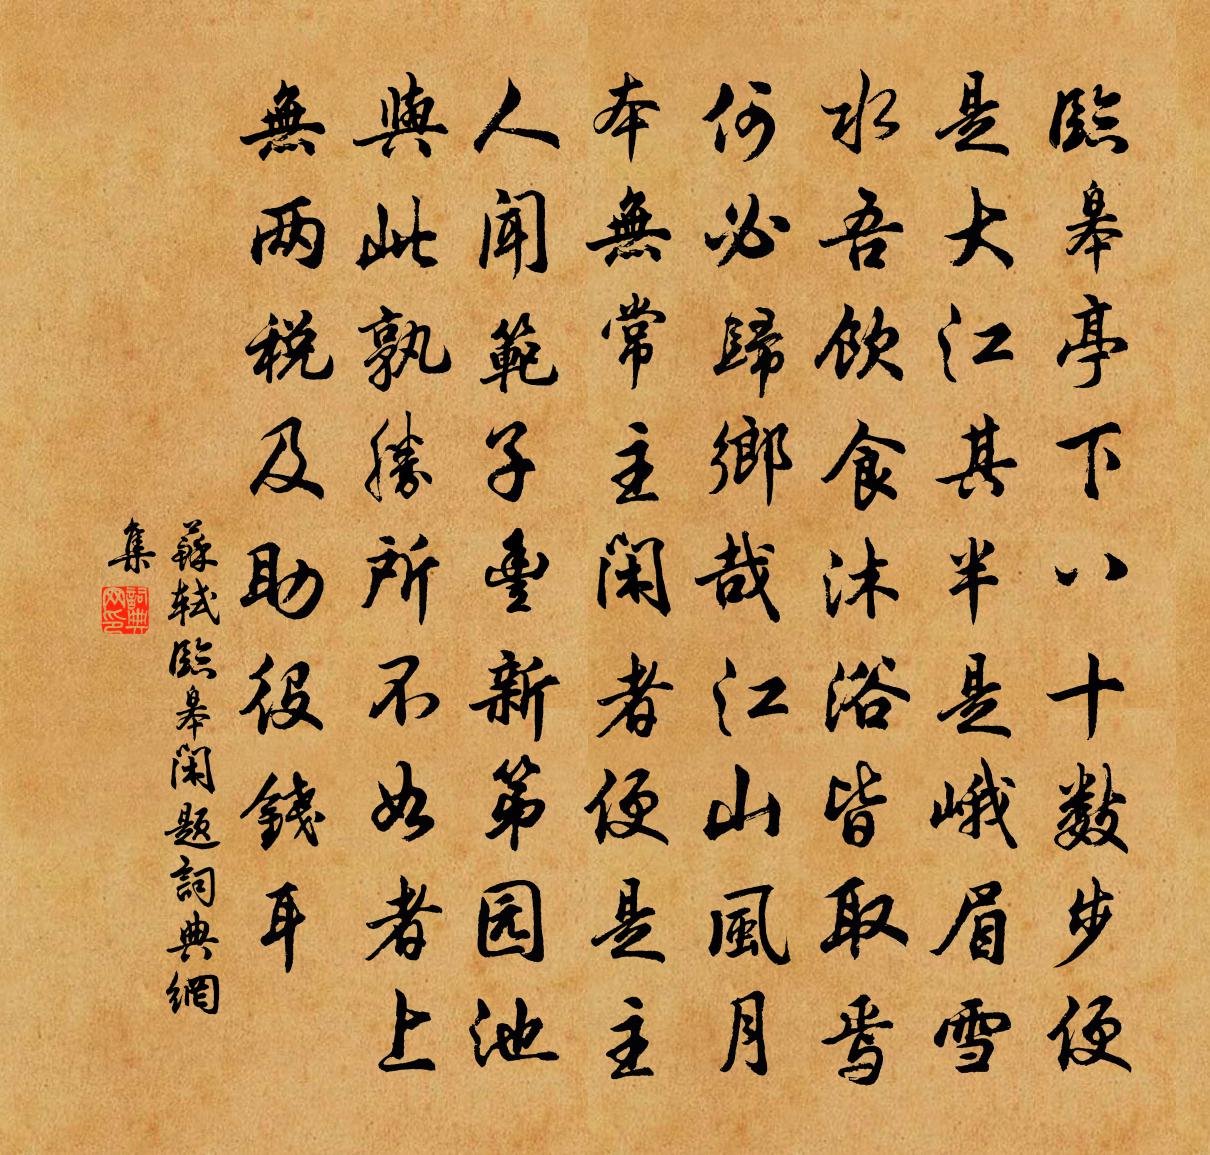 臨皋亭下八十数步便
是大江其半是峨眉雪
水吾飲食沐浴皆取焉
何必歸鄉哉江山風月
本無常主閑者便是主
人聞範子豐新第园池
與此孰勝所不如者上
無两税及助役錢耳
蘇轼臨皋閑題詞典網
集
詞典
网印